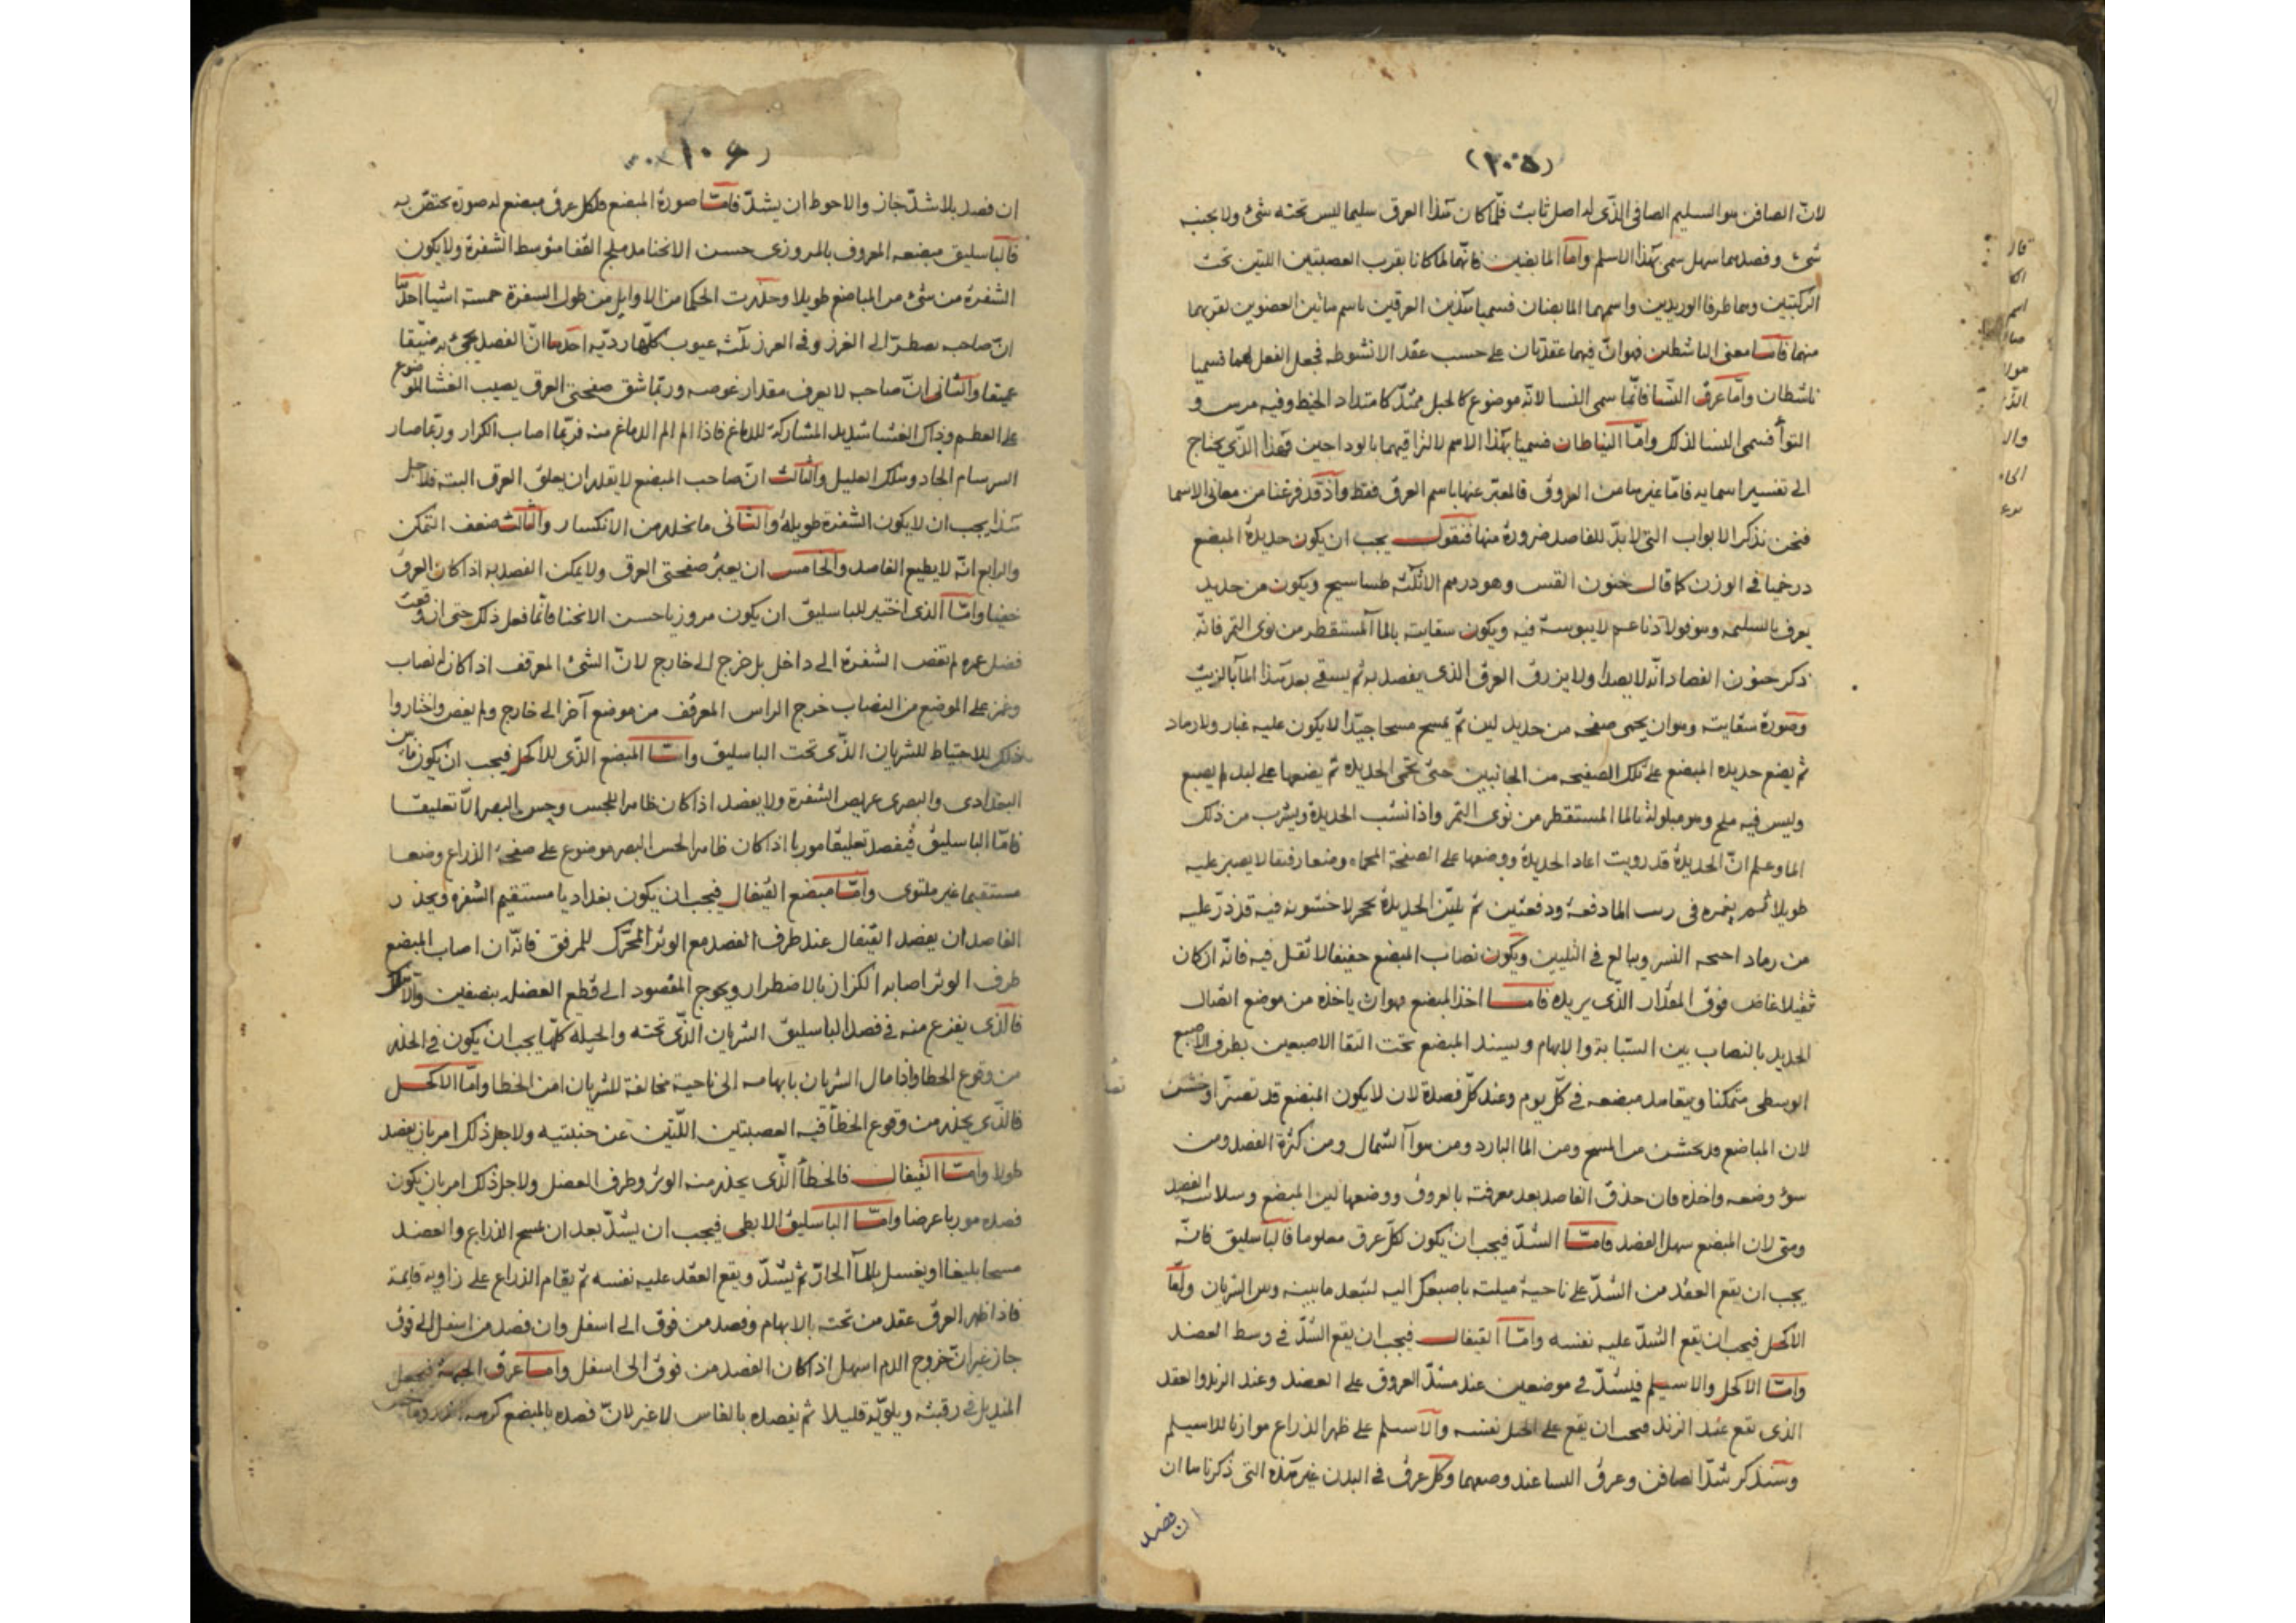 (١٠٥)
لانّ الصافن هو السليم الصافى الذّى له اصل ثابت فلّما كان هذا العرق سليما ليس تحته شئ ولا بجنبه
شئ وفصدهما سهل سمى بهذا الاسلم وامّا المابضين فانّهما لما كانا بقرب العصبتين اللتين تحت
الركبتين وهما طرفا الوريدين واسمهما المابضان فسميا هذين العرقين باسم هاتين العضوين لقربهما
منهما فامّا معنى الناشطين فهو انّ فيهما عقدتان على حسب عقد الانشوطه فجعل الفعل لهما فسميا
ناشطان وامّا عرق النّسا فانّما سمى النسا لانّه موضوع كالحبل ممتدّ كامتداد الخيط وفيه مرس و
التوآ فسمى النسا لذلك وامّا النياطان فسميا بهذا الاسم لالتزاقيهما بالوداجين فهذا الذّى يحتاج
الى تفسير اسمايه فامّا غيرها من العروق فالمعبّر عنها باسم العرق فقط واذ قد فرغنا من معانى الاسما
فنحن نذكر الابواب التى لابدّ للفاصد ضرورة منها فنقول يجب ان يكون حديدة المبضع
درخميا فى الوزن كما قال حنون القس وهو درهم الاثلثه طساسيج ويكون من حديد
يعرف بالسليمه وهو فولاذ ناعم لا يبوسة فيه ويكون سقايته بالما المستقطر من نوى التمر فانّه
ذكر حنون الفصاد انّه لا يصدا ولا يزرق العرق الذى يفصد به ثم يسقى بعد هذا المآ بالزيت
وصورة سقايته وهو ان يحمى صفحه من حديد لين ثم يمسح مسحا جيّدا لا يكون عليه غبار ولا رماد
ثم يضع حديده المبضع على تلك الصفيحه من الجانبين حتى تحمى الحديده ثم يضعها على لبد لم يصبغ
وليس فيه ملح وهو مبلولة بالما المستقطر من نوى التمر واذا نشب الحديدة ويشرب من ذلك
الما وعلم انّ الحديدة قد رويت اعاد الحديدة ووضعها على الصفحة المحماه وضعا رفيقا لا يصبر عليه
طويلا ثم يغمره فى رب الما دفعة ودفعتين ثم يلين الحديدة بحجر لا خشونه فيه قد ذرّ عليه
من رماد اجنحه النسر ويبالغ فى التليين ويكون نصاب المبضع خفيفا لا ثقل فيه فانّه ان كان
ثقيلا غاص فوق المقدار الذّى يريده فامّا اخذ المبضع فهو ان ياخذه من موضع اتصال
الحديد بالنصاب بين السّبابة والابهام ويسند المبضع تحت التقا الاصبعين بطرف الاصبع
الوسطى متمكنا ويتعاهد مبضعه فى كلّ يوم وعند كلّ فصدة لان لا يكون المبضع قد تغيّر او خشن
لان المباضع قد يخشن من المسح ومن الما البارد ومن هوآ الشمال ومن كثرة الفصد ومن
سوء وضعه واخذه فان حذق الفاصد بعد معرفته بالعروق ووضعها لين المبضع وسلامه الفصد
ومتى لان المبضع سهل الفصد فامّا الشدّ فيجب ان يكون لكلّ عرق معلوما فالباسليق فانّه
يجب ان يقع العقد من الشدّ على ناحية ميلته باصبعك اليه لتبعد ما بينه وبين الشريان وامّا
الاكحل فيجب ان يقع الشدّ عليه نفسه وامّا القيفال فيجب ان يقع الشدّ فى وسط العضد
وامّا الاكحل والاسيلم فيشدّ فى موضعين عند مشدّ العروق على العضد وعند الزند والعقد
الذى يقع عند الزند فيجب ان يقع على الحبل نفسه والاسيلم على ظهر الذراع موازيا للاسيلم
وسنذكر شدّ الصافن وعرق النسا عند وضعهما وكل عرق فى البدن غير هذه التى ذكرناها ان
ان فصد
(١٠٦)
ان فصد بلا شدّ جاز والاحوط ان يشدّ فامّا صورة المبضع فلكل عرق مبضع له صورة يختصّ به
فالباسليق مبضعه المعروف بالمروزى حسن الانحنا مدملج القفا متوسط الشفرة ولا يكون
الشفرة من شئ من المباضع طويلا وحذرت الحكما من الاوايل من طول الشفرة خمسة اشيا احدّها
انّ صاحبه يضطرّ الى الغرز وفى الغرز ثلثه عيوب كلّها رديّه احدها انّ الفصد يجئ به ضيّقا
عميقا والثانى انّ صاحبه لا يعرف مقدار غوصه وربّما شق صفحتى العرق يصيب الغشا الموضوع
على العظم وذاك الغشا شديد المشاركة للدماغ فاذا الم الم الدماغ منه فربّما اصاب الكزاز وربّما صار
السرسام الحاد وهلك العليل والثالث انّ صاحب المبضع لا يقدر ان يعلق العرق البته فلاجل
هذا يجب ان لا يكون الشفرة طويلة والثانى ما نحذره من الانكسار والثالث ضعف التمكن
والرابع انّه لا يطيع الفاصد والخامس ان يعبر صفحتى العرق ولا يمكن الفصد به اذا كان العرق
خفيا وامّا الذى اختير للباسليق ان يكون مروزيا حسن الانحنا فانّما فعل ذلك حتى ان وقعت
فضل غمره لم تغص الشفرة الى داخل بل خرج الى خارج لانّ الشئ المعرقف اذا كان له نصاب
وغمز على الموضع من النصاب خرج الراس المعرقف من موضع آخر الى خارج ولم يغص واختاروا
ذلك للاحتياط للشريان الذّى تحت الباسليق وامّا المبضع الذّى للاكحل فيجب ان يكون ما بين
البغدادى والبصرى عريض الشفرة ولا يفصد اذا كان ظاهرا للجس وجس البصر الّا تعليقا
فامّا الباسليق فيفصد تعليقا موربا اذا كان ظاهرا لحس البصر موضوع على صفحة الذراع وضعا
مستقيما غير ملتوى وامّا مبضع القيفال فيجب ان يكون بغداديا مستقيم الشفره ويحذر
الفاصد ان يفصد القيفال عند طرف العضد مع الوتر المحرّك للمرفق فانّه ان اصاب المبضع
طرف الوتر اصابه الكزاز بالاضطرار ويحوج المفصود الى قطع العضله بنصفين والا هلك
فالذى يفزع منه فى فصد الباسليق الشريان الذّى تحته والحيله كلّها يجب ان يكون فى الحذر
من وقوع الخطا واذا مال الشريان بابهامه الى ناحية مخالفة للشريان امن الخطا وامّا الاكحل
فالذّى يحذر من وقوع الخطأ فيه العصبتين اللّتين عن جنبتيه ولاجل ذلك امر بان يفصد
طولا وامّا القيفال فالخطأ الذّى يحذر منه الوتر وطرف العضل ولاجل ذلك امر بان يكون
فصده موربا عرضا وامّا الباسليق الابطى فيجب ان يشدّ بعد ان يمسح الذراع والعضد
مسحا بليغا او يغسل بالمآ الحارّ ثم يشدّ ويقع العقد عليه نفسه ثم يقام الذراع على زاويه قايمة
فاذا ظهر العرق عقد من تحته بالابهام وفصد من فوق الى اسفل وان فصد من اسفل الى فوق
جاز غير انّ خروج الدم اسهل اذا كان الفصد من فوق الى اسفل وامّا عرق الجبهة فيجعل
المنديل فى رقبته ويلويّه قليلا ثم يفصده بالفاس لا غير لانّ فصده بالمبضع